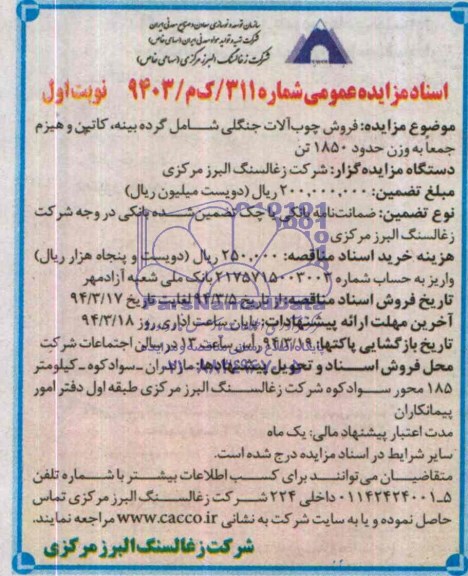 سازمان توسعه و نوسازی معادن و صنایع معدنی ایران
شرکت تهیه و تولید مواد معدنی ایران (سهامی خاص)
شرکت زغالسنگ البرز مرکزی (سهامی خاص)
اسناد مزایده عمومی شماره ۳۱۱/ک م/۹۴۰۳ نوبت اول
موضوع مزایده: فروش چوب‌آلات جنگلی شامل گرده بینه، کاتین و هیزم
جمعاً به وزن حدود ۱۸۵۰ تن
دستگاه مزایده‌گزار: شرکت زغالسنگ البرز مرکزی
مبلغ تضمین: ۲۰۰,۰۰۰,۰۰۰ ریال (دویست میلیون ریال)
نوع تضمین: ضمانت‌نامه بانکی یا چک تضمین‌شده بانکی در وجه شرکت
زغالسنگ البرز مرکزی
هزینه خرید اسناد مناقصه: ۲۵۰,۰۰۰ ریال (دویست و پنجاه هزار ریال)
واریز به حساب شماره ۲۱۷۵۷۱۵۰۰۳۰۰۳ بانک ملی شعبه آزادمهر
تاریخ فروش اسناد مناقصه: از تاریخ ۹۴/۳/۵ لغایت تاریخ ۹۴/۳/۱۷
آخرین مهلت ارائه پیشنهادات: پایان ساعت اداری روز ۹۴/۳/۱۸
تاریخ بازگشایی پاکتها: ۹۴/۳/۱۹ رأس ساعت ۱۳ در سالن اجتماعات شرکت
محل فروش اسناد و تحویل پیشنهادها: مازندران ـ سوادکوه ـ کیلومتر
۱۸۵ محور سوادکوه شرکت زغالسنگ البرز مرکزی طبقه اول دفتر امور
پیمانکاران
مدت اعتبار پیشنهاد مالی: یک ماه
سایر شرایط در اسناد مزایده درج شده است.
متقاضیان می‌توانند برای کسب اطلاعات بیشتر با شماره تلفن
۵ـ۰۱۱۴۲۴۲۴۰۰۱ داخلی ۲۲۴ شرکت زغالسنگ البرز مرکزی تماس
حاصل نموده و یا به سایت شرکت به نشانی www.cacco.ir مراجعه نمایند.
شرکت زغالسنگ البرز مرکزی